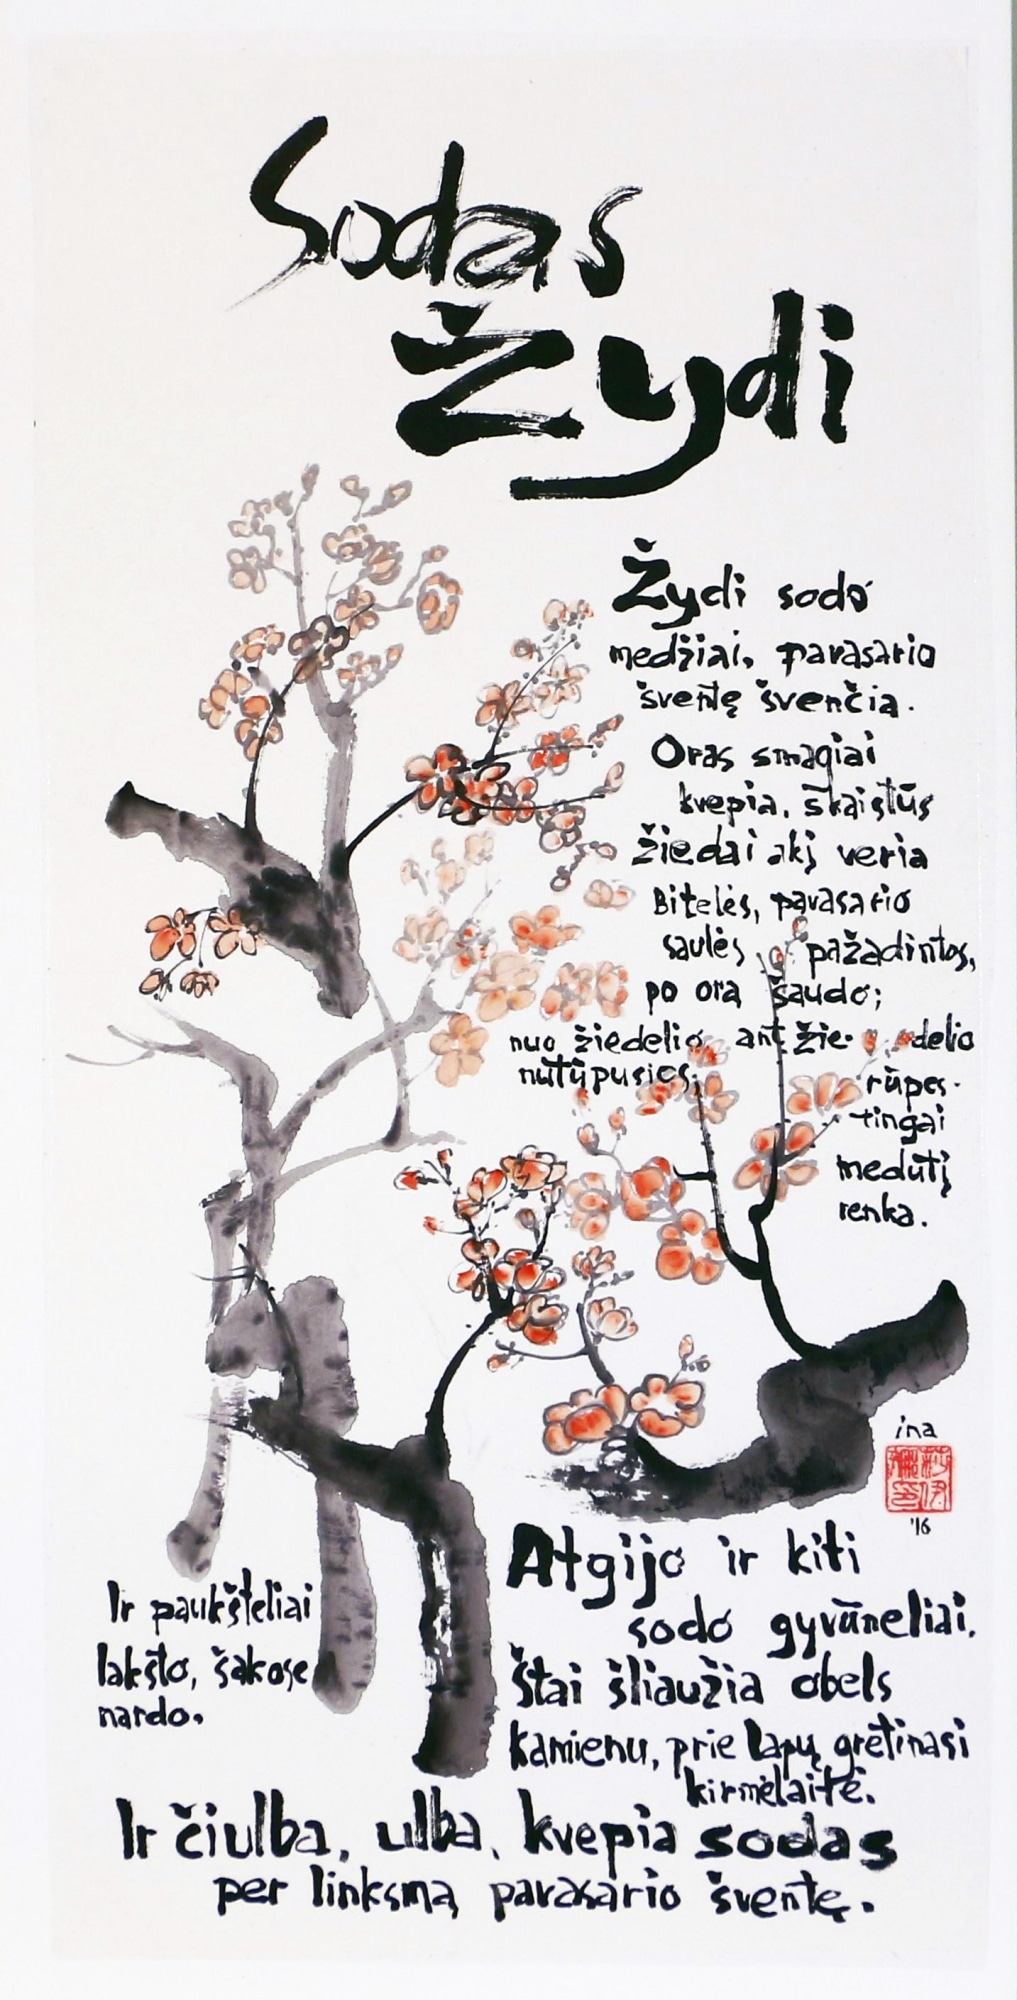 Sodas
Žydi
Žydi sodo
medžiai, pavasario
šventę švenčia.
Oras smagiai
kvepia, skaistūs
žiedai akį veria
Bitelės, pavasario
saulės pažadintos,
po orą šaudo;
nuo žiedelio ant žie-delio
nutūpusios,
rūpes-
tingai
medutį
renka.
ina
'16
Atgijo ir kiti
sodo gyvūneliai.
Štai šliaužia obels
kamienu, prie lapų gretinasi
kirmėlaitė.
Ir paukšteliai
laksto, šakose
nardo.
Ir čiulba, ulba, kvepia sodas
per linksmą pavasario šventę.